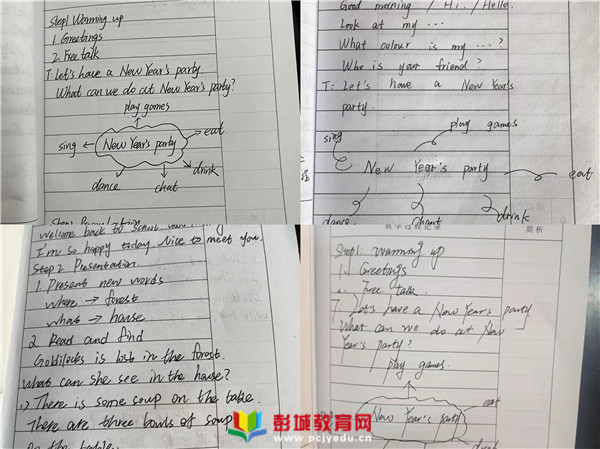 Step1 Warming up
1. Greetings
2. Free talk
T: Let's have a New Year's party
What can we do at New Year's party?
play games
sing
New Year's party
eat
drink
dance
chat
Good morning / Hi. / Hello.
Look at my ...
What colour is my ...?
Who is your friend?
T: Let's have a New Year's
party.
sing
play games
New Year's party
eat
dance
chant
drink
Welcome back to school
I'm so happy today. Nice to meet you.
Step 2 Presentation.
1. Present new words
where → forest
what → house
2. Read and find
Goldilocks is lost in the forest.
What can she see in the house?
1) There is some soup on the table.
There are three bowls of soup
on the table.
教学过程记录
简析
Step1 Warming up
1. Greetings
Free talk.
T. Let's have a New Year's party.
What can we do at New
Year's party?
play games.
New Year's party
eat
drink
彭城教育网
www.pcjyedu.cn